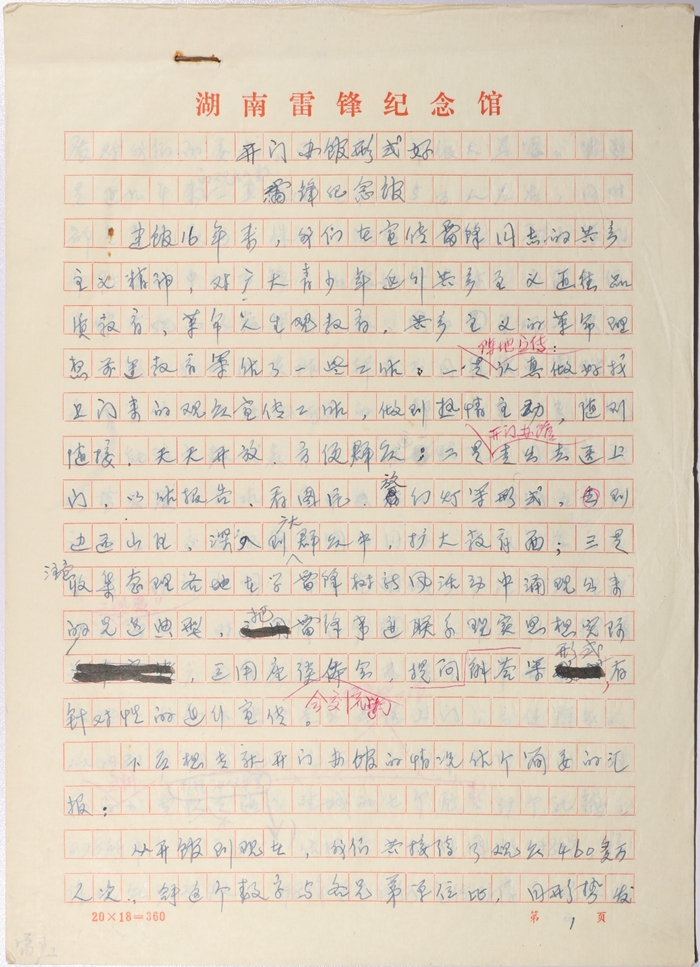 湖南雷锋纪念馆
开门办馆形式好
雷锋纪念馆
建馆16年来，我们在宣传雷锋同志的共产
主义精神，对广大青少年进行共产主义道德品
质教育，革命人生观教育，共产主义的革命理
阵地宣传：
想前途教育等做了一些工作：一是认真做好找
上门来的观众宣传工作，做到热情主动，随到
开门办馆
随接，天天开放，方便群众；二是走出去送上
门，以作报告、看图片、放幻灯等形式，到
边远山区，深入到广大群众中，扩大教育面；三是
注意
收集整理各地在学雷锋树新风活动中涌现出来
的先进典型，把雷锋事迹联系现实思想实际
，运用座谈会，提问解答等形式，有
会交流
针对性的进行宣传。
下面想专就开门办馆的情况作个简要的汇
报：
从开馆到现在，我们共接待了观众460多万
人次，但这个数字与兄弟单位比，因形势发
20×18=360
第1页